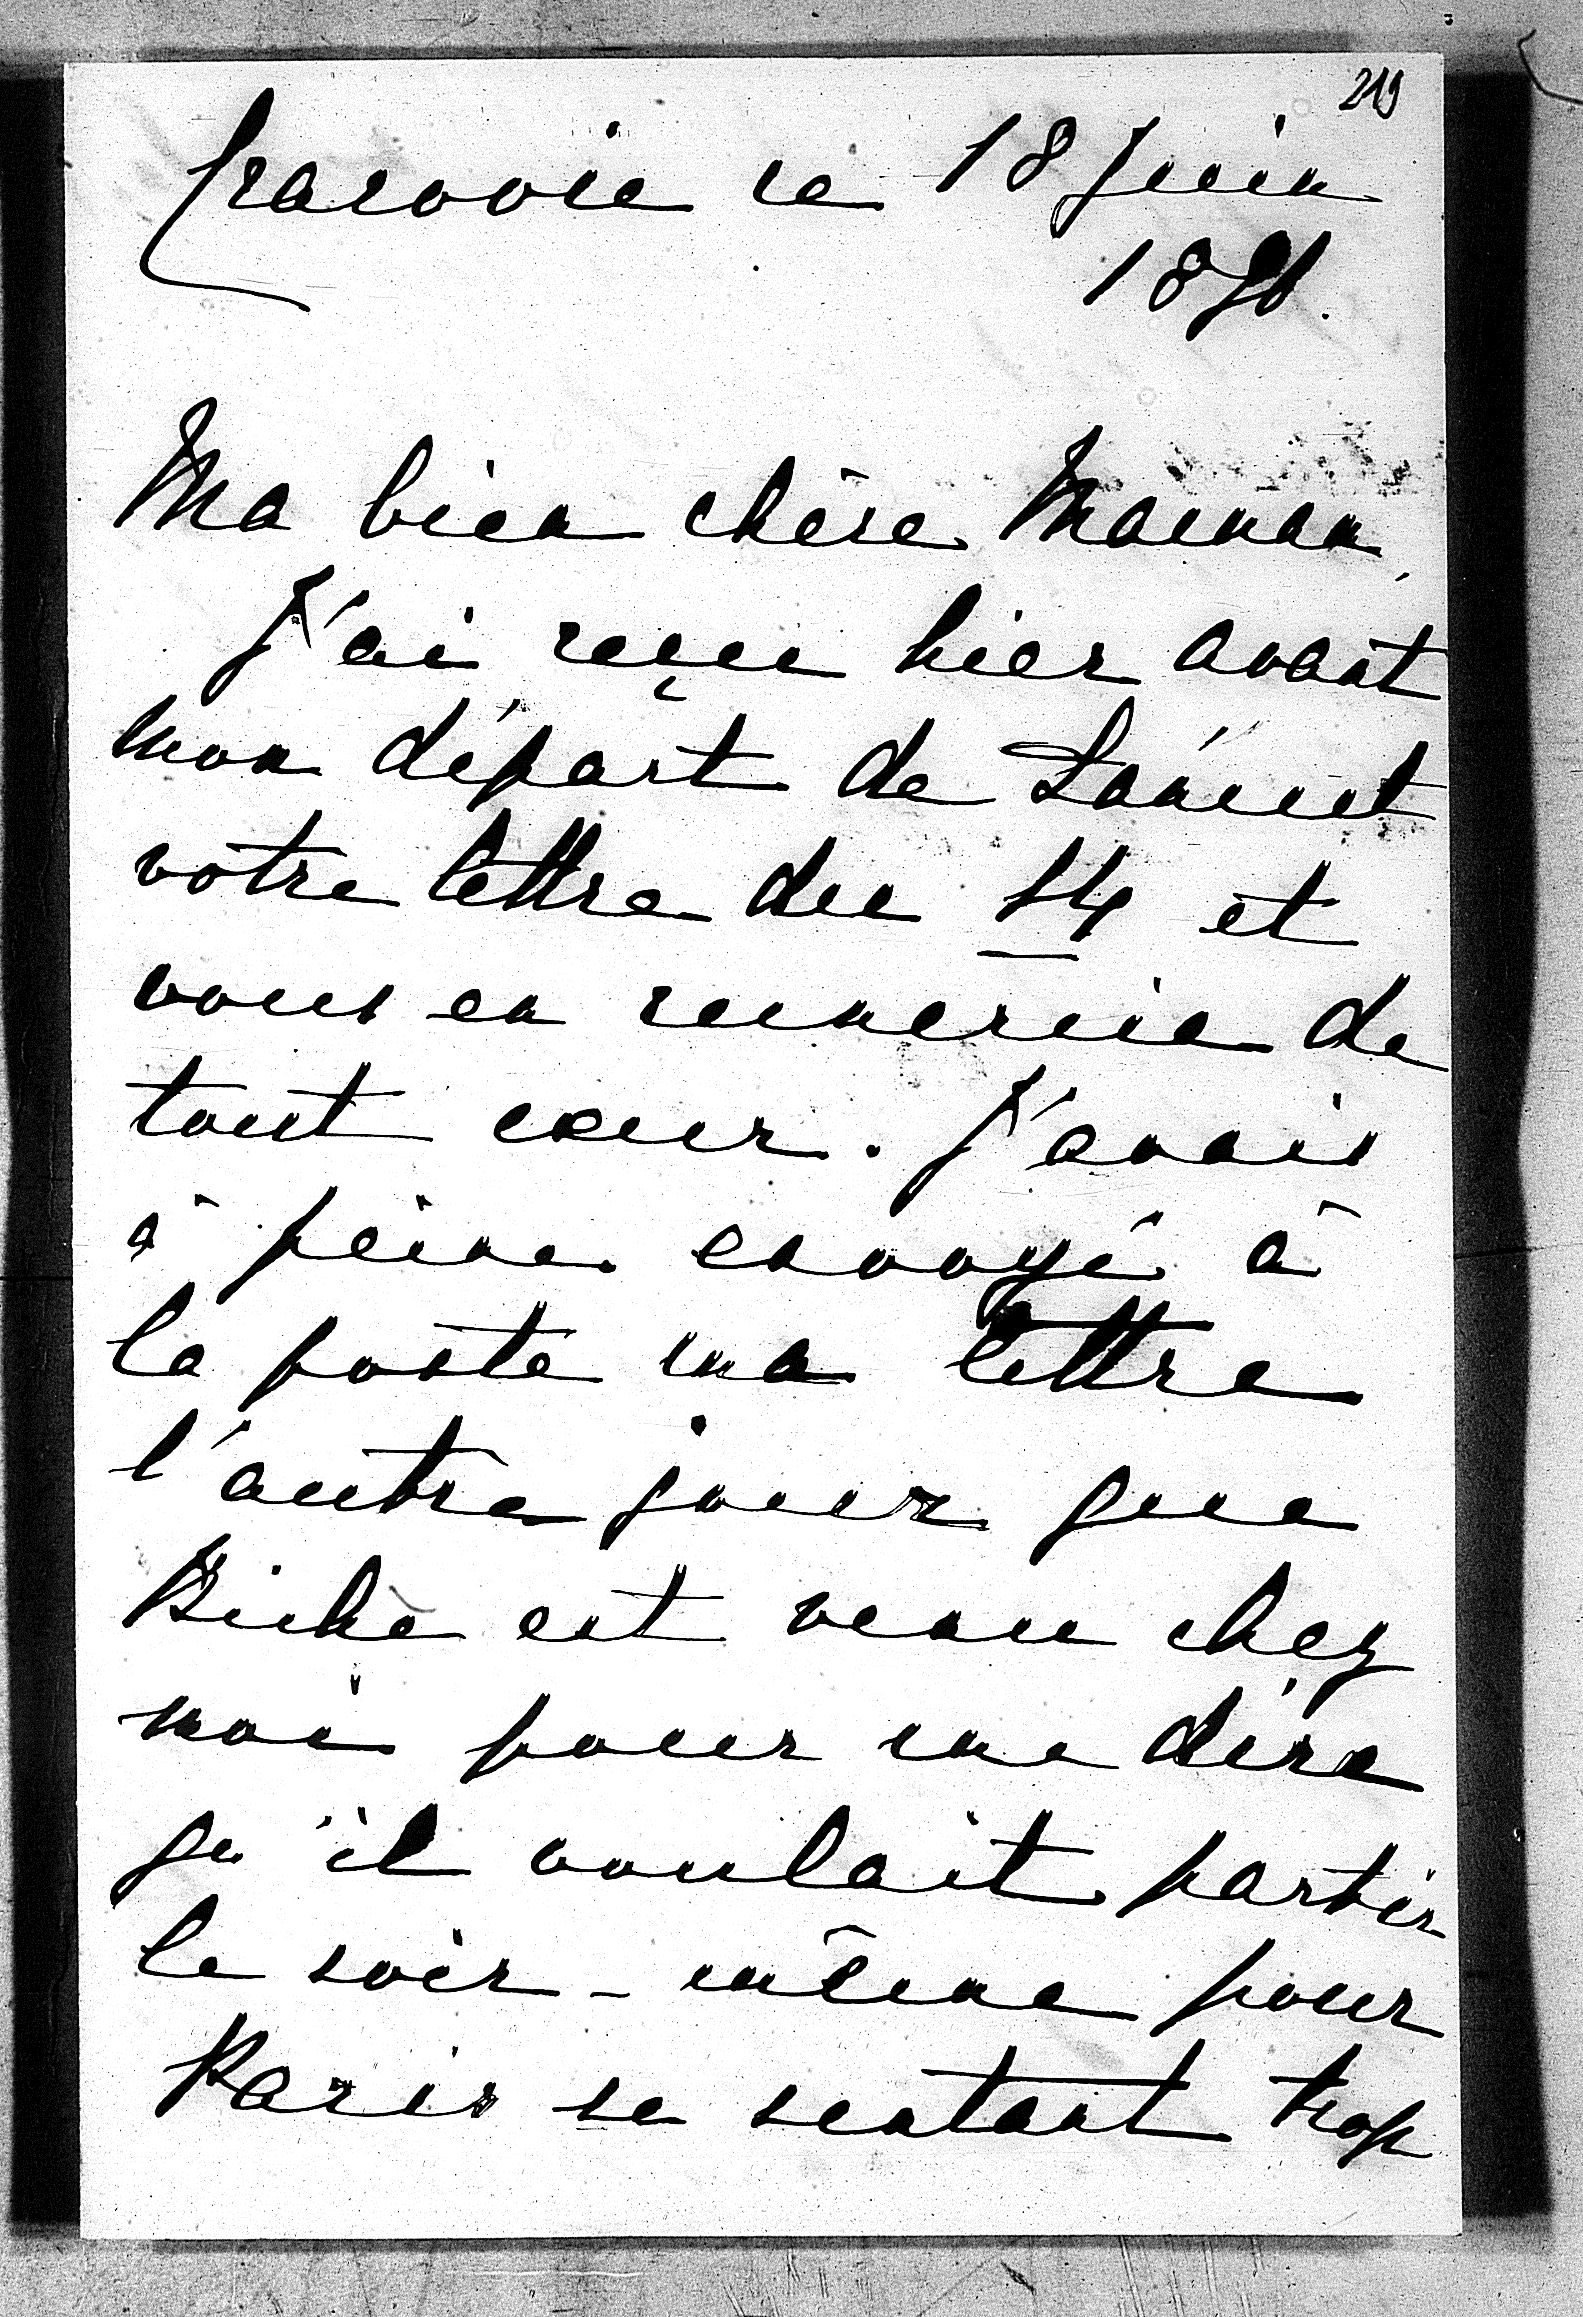 219
Cracovie ce 18 Juin
189
Ma bien chère Maman,
J'ai reçu hier avant
mon départ de Łańcut
votre lettre du 14 et
vous en remercie de
tout cœur. J'avais
à peine envoyé à
la poste ma lettre
l'autre jour que
Biche est venu chez
moi pour me dire
qu'il voulait partir
le soir-même pour
Paris se sentant trop